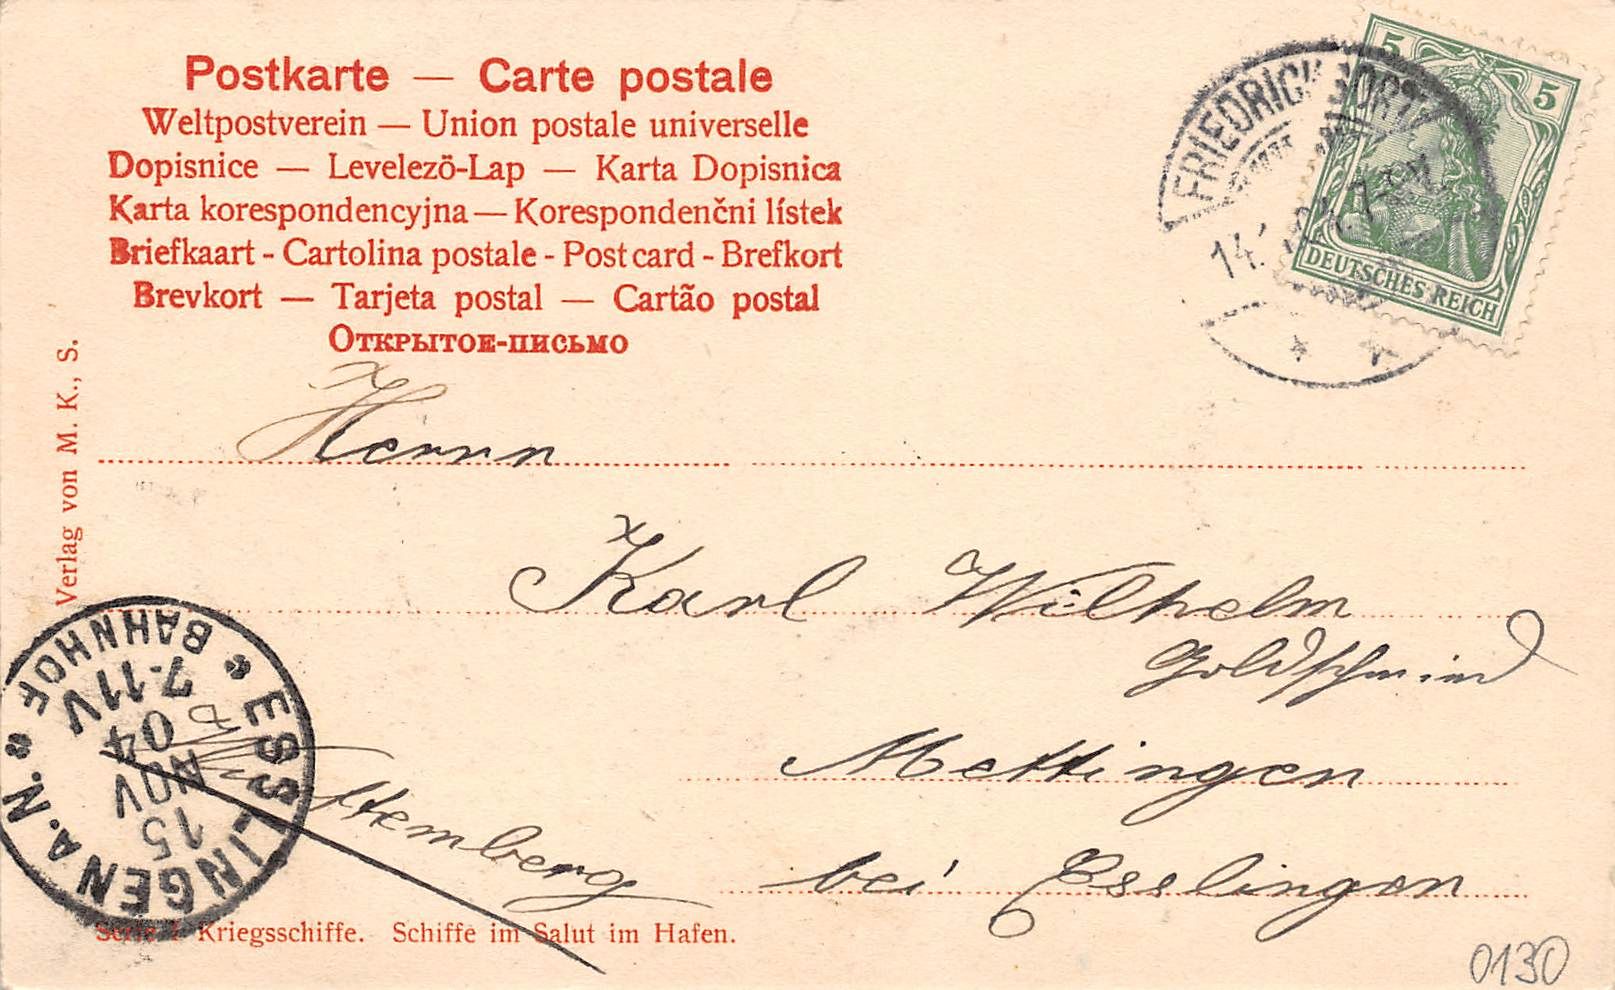 Postkarte — Carte postale
Weltpostverein — Union postale universelle
Dopisnice — Levelezö-Lap — Karta Dopisnica
Karta korespondencyjna — Korespondenčni lístek
Briefkaart - Cartolina postale - Post card - Brefkort
Brevkort — Tarjeta postal — Cartão postal
Открытое-письмо
5 5
DEUTSCHES REICH
FRIEDRICHSORT
14.
Verlag von M. K., S.
Herrn
Karl Wilhelm
Goldschmied
Mettingen
bei Esslingen
Württemberg
ESSLINGEN A.N.
BAHNHOF
15
NOV
04
7-11V
Serie I Kriegsschiffe. Schiffe im Salut im Hafen.
0130